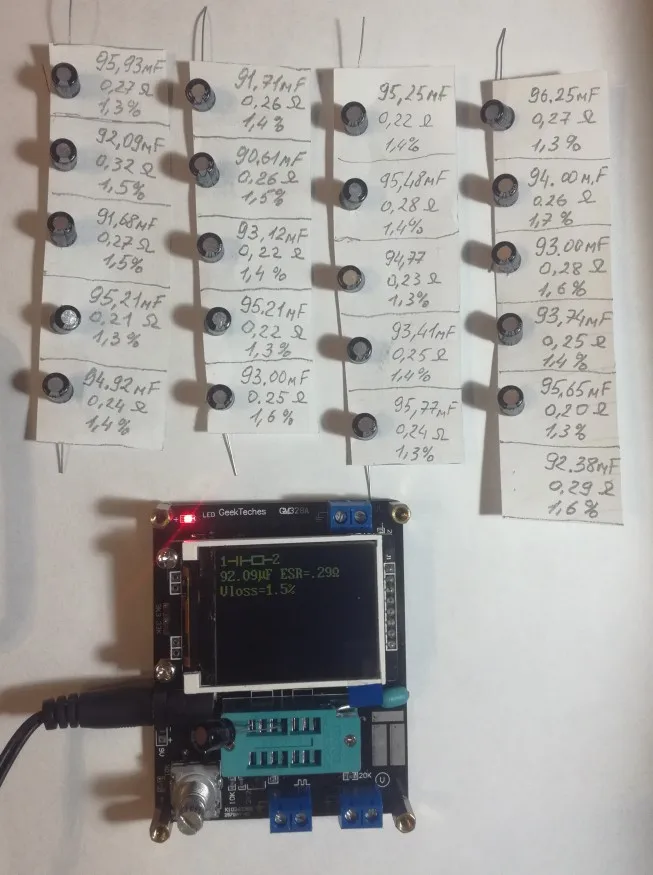 95,93мF
0,27 Ω
1,3%
92,09мF
0,32 Ω
1,5%
91,68мF
0,27 Ω
1,5%
95,21мF
0,21 Ω
1,3%
94.92мF
0,24 Ω
1,4%
91,71мF
0,26 Ω
1,4%
90,61мF
0,26 Ω
1,5%
93,12мF
0,22 Ω
1,4%
95.21мF
0,22 Ω
1,3%
93,00мF
0.25 Ω
1,6%
95,25мF
0,22 Ω
1,4%
95,48мF
0,28 Ω
1,4%
94,77
0,23 Ω
1,3%
93,41мF
0,25 Ω
1,4%
95,77мF
0,24 Ω
1,3%
96.25мF
0,27 Ω
1,3%
94.00мF
0.26 Ω
1.7%
93.00мF
0,28 Ω
1,6%
93,74мF
0,25 Ω
1,4%
95,65мF
0,20 Ω
1,3%
92.38мF
0,29 Ω
1,6%
LED GeekTeches GM328A
1 2
92.09µF ESR=.29Ω
Vloss=1.5%
9V
10K
20K
V